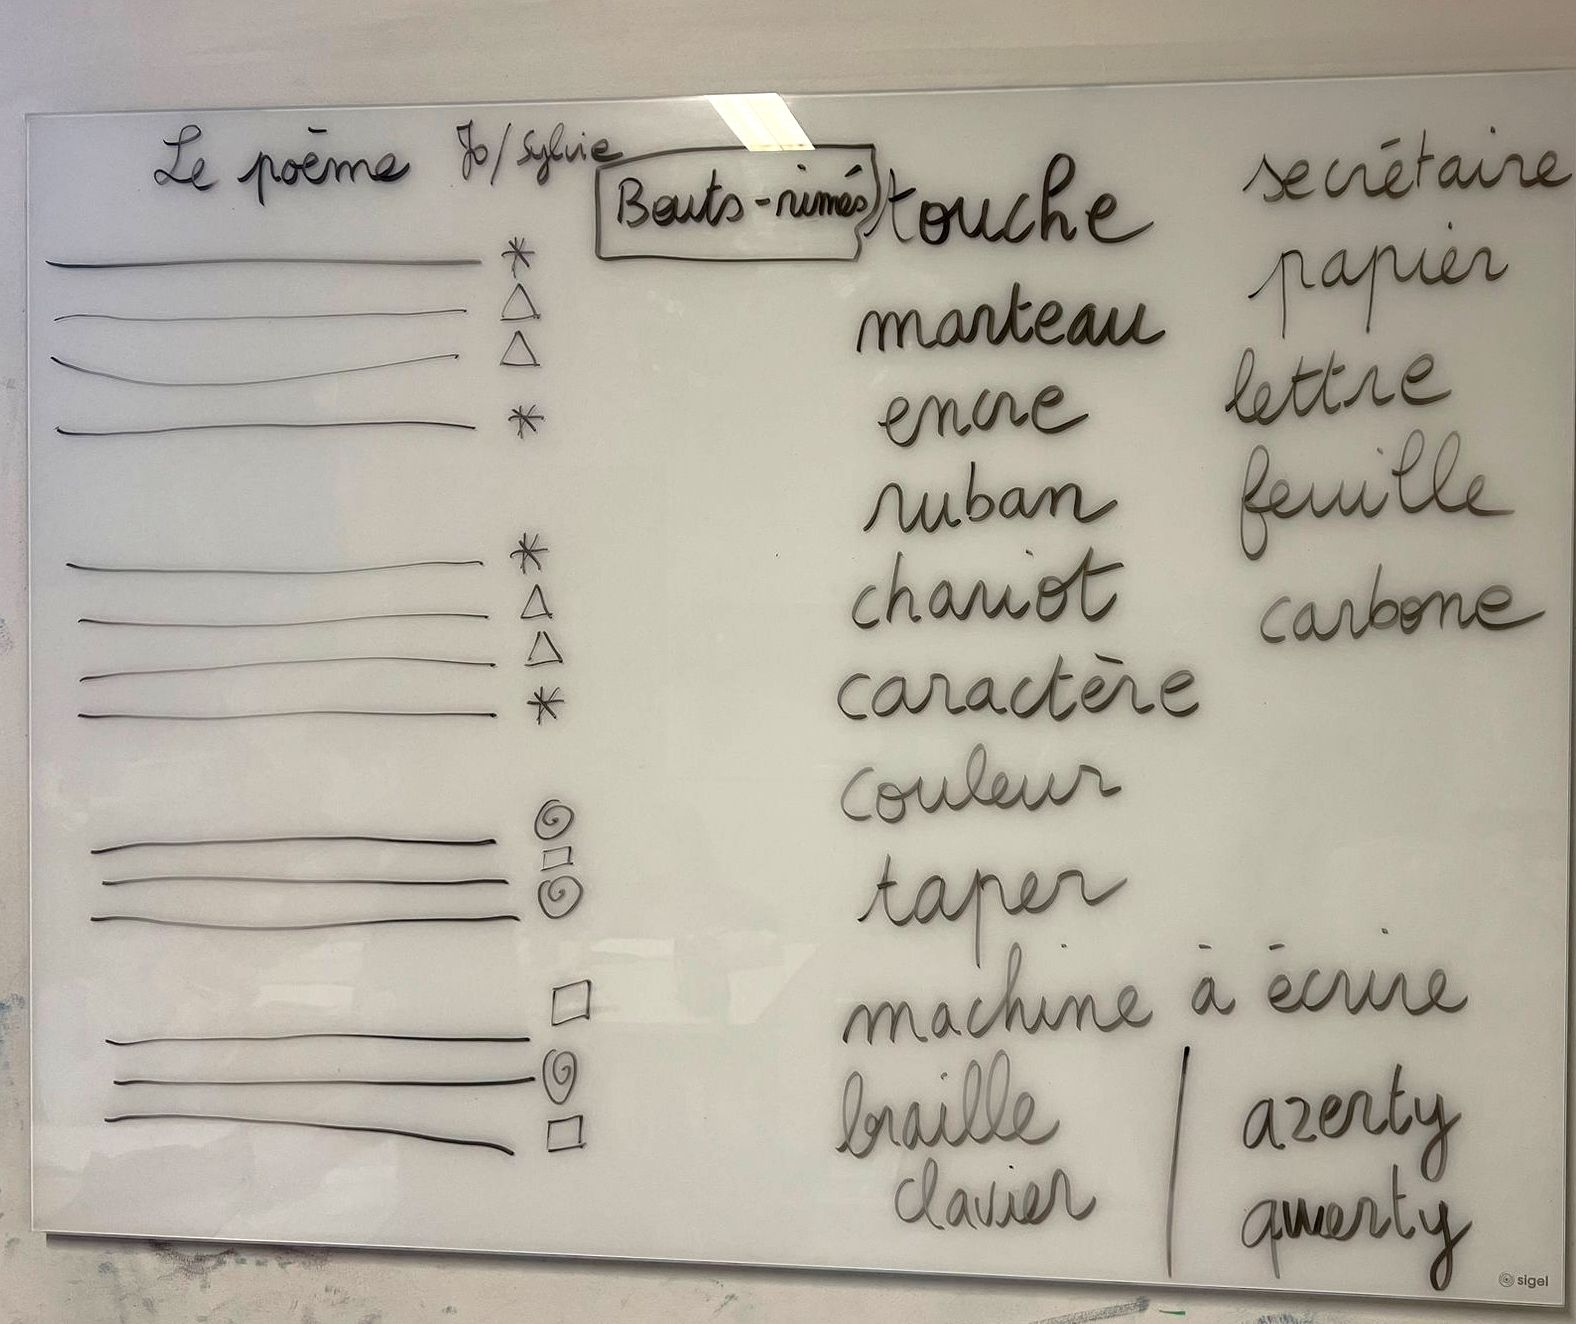 Le poème Jo/Sylvie
Bouts-rimés
touche
marteau
encre
ruban
chariot
caractère
couleur
taper
machine à écrire
braille
clavier
secrétaire
papier
lettre
feuille
carbone
azerty
qwerty
sigel